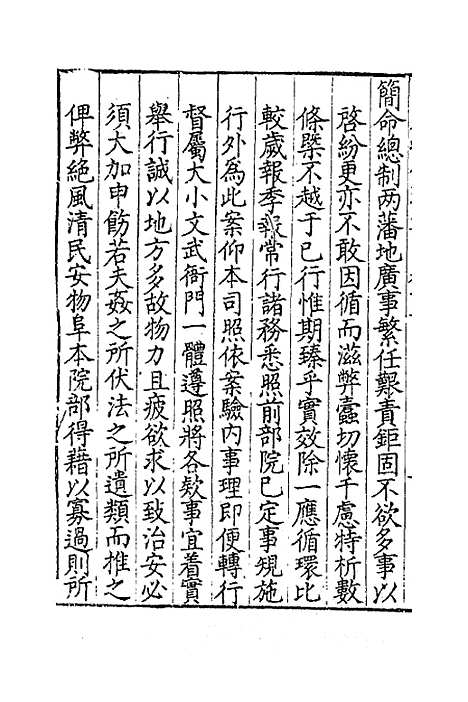 簡命總制两藩地廣事繁任艱責鉅固不欲多事以
啓紛更亦不敢因循而滋弊蠹切懷千慮特析數
條槩不越于已行惟期臻乎實效除一應循環比
較歲報季報常行諸務悉照前部院已定事規施
行外爲此案仰本司照依案驗内事理即便轉行
督屬大小文武衙門一體遵照將各欵事宜着實
舉行誠以地方多故物力且疲欲求以致治安必
須大加申飭若夫姦之所伏法之所遺類而推之
俾弊絕風清民安物阜本院部得藉以寡過則所